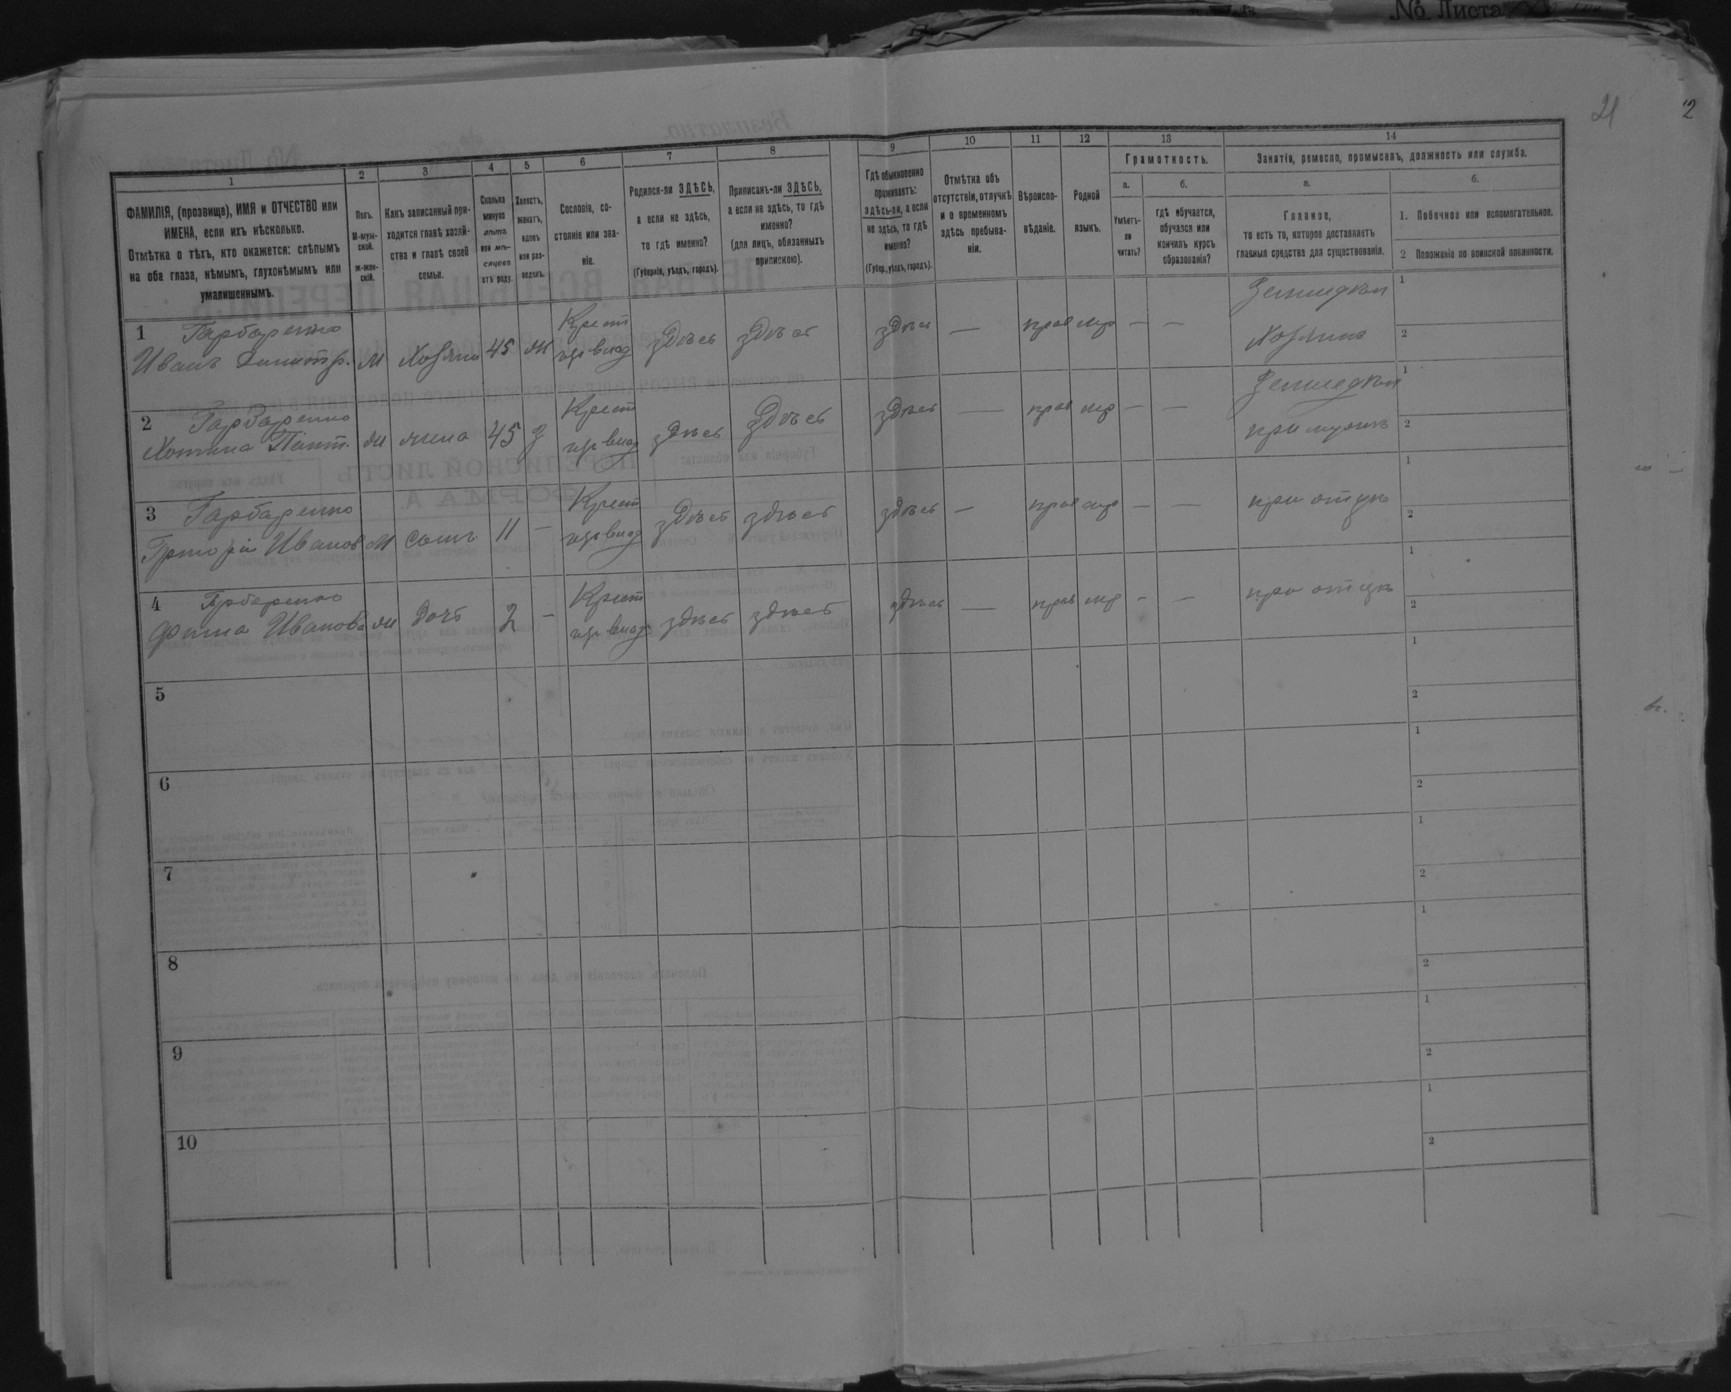 № Листа
21
2
1
ФАМИЛІЯ, (прозвище), ИМЯ и ОТЧЕСТВО или
ИМЕНА, если ихъ нѣсколько.
Отмѣтка о тѣхъ, кто окажется: слѣпымъ
на оба глаза, нѣмымъ, глухонѣмымъ или
умалишеннымъ.
2
Полъ.
М-муж-
ской.
ж-жен-
скій.
3
Какъ записанный при-
ходится главѣ хозяй-
ства и главѣ своей
семьи.
4
Сколько
минуло
лѣтъ
или мѣ-
сяцевъ
отъ роду.
5
Холостъ,
женатъ,
вдовъ
или раз-
веденъ.
6
Сословіе, со-
стояніе или зва-
ніе.
7
Родился-ли ЗДѢСЬ,
а если не здѣсь,
то гдѣ именно?
(Губернія, уѣздъ, городъ).
8
Приписанъ-ли ЗДѢСЬ,
а если не здѣсь, то гдѣ
именно?
(для лицъ, обязанныхъ
припискою).
9
Гдѣ обыкновенно
проживаетъ:
здѣсь-ли, а если
не здѣсь, то гдѣ
именно?
(Губер., уѣздъ, городъ).
10
Отмѣтка объ
отсутствіи, отлучкѣ
и о временномъ
здѣсь пребыва-
ніи.
11
Вѣроиспо-
вѣданіе.
12
Родной
языкъ.
13
Грамотность.
а.
Умѣетъ-
ли
читать?
б.
гдѣ обучается,
обучался или
кончилъ курсъ
образованія?
14
Занятіе, ремесло, промыселъ, должность или служба.
а.
Главное,
то есть то, которое доставляетъ
главныя средства для существованія.
б.
1. Побочное или вспомогательное.
2 Положеніе по воинской повинности.
1 Гарбаренко
Иванъ Димитр. м Хозяинъ 45 ж Крест здѣсь здѣсь здѣсь — прав мр — — Земледѣл 1
Хозяинъ 2
2 Гарбаренко
жена 45 з Крест здѣсь здѣсь здѣсь — прав мр — — Земледѣл 1
при мужѣ 2
3 Гарбаренко
Григорій Иванов М сынъ 11 — Крест здѣсь здѣсь здѣсь — прав мр — — при отцѣ 1
2
4 Гарбаренко
Иванова дочь 2 — Крест здѣсь здѣсь здѣсь — прав мр — — при отцѣ 1
2
5 1
2
6 1
2
7 1
2
8 1
2
9 1
2
10 1
2